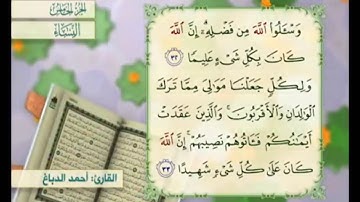 الجزء الخامس
النساء
وَسْـَٔلُوا۟ ٱللَّهَ مِن فَضْلِهِۦٓ ۗ إِنَّ ٱللَّهَ
كَانَ بِكُلِّ شَىْءٍ عَلِيمًا ٣٢
وَلِكُلٍّ جَعَلْنَا مَوَٰلِىَ مِمَّا تَرَكَ
ٱلْوَٰلِدَانِ وَٱلْأَقْرَبُونَ ۚ وَٱلَّذِينَ عَقَدَتْ
أَيْمَٰنُكُمْ فَـَٔاتُوهُمْ نَصِيبَهُمْ ۚ إِنَّ ٱللَّهَ
كَانَ عَلَىٰ كُلِّ شَىْءٍ شَهِيدًا ٣٣
القارئ: أحمد الدباغ